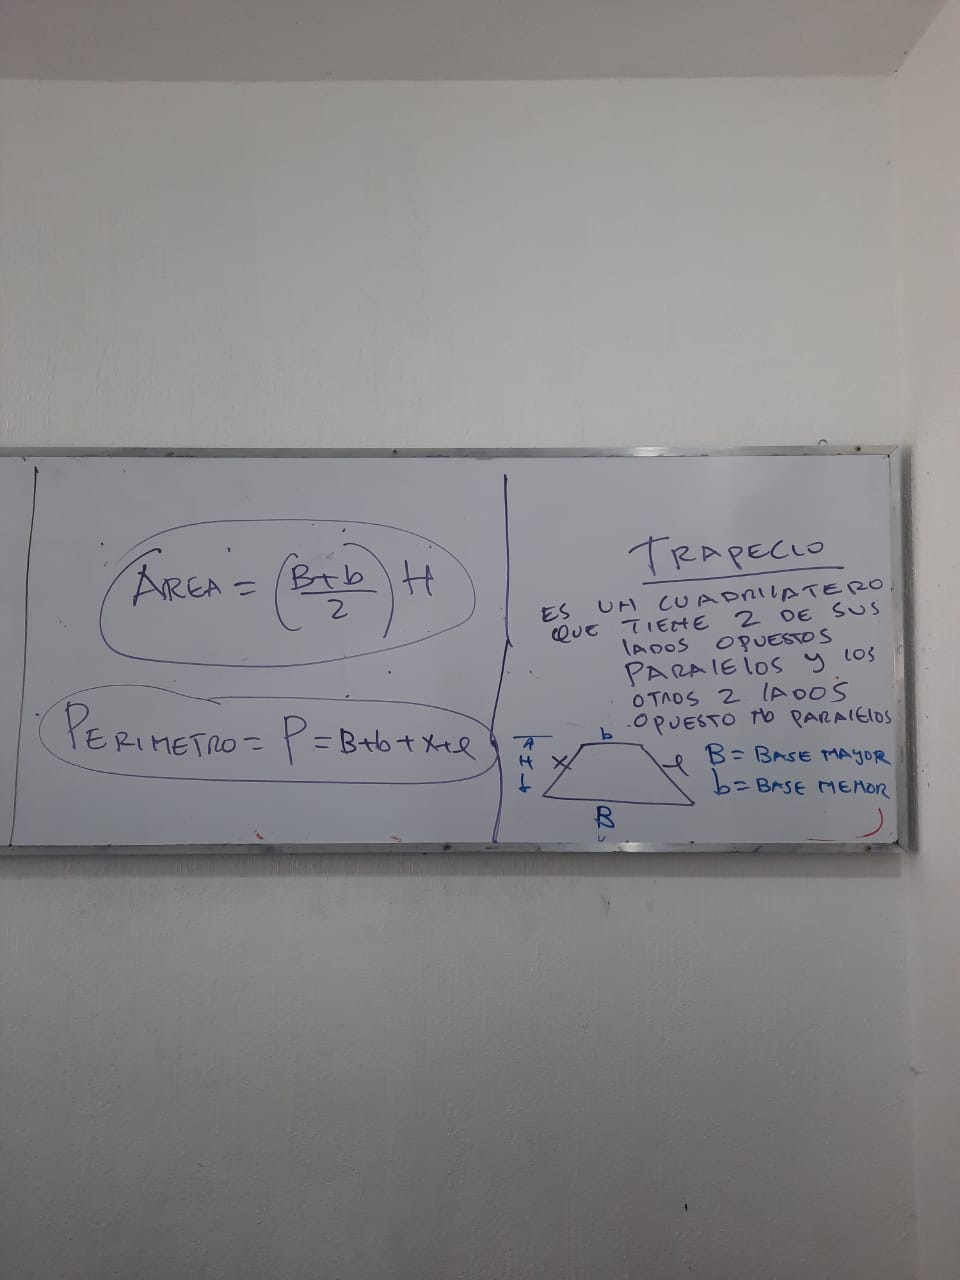 ÁREA = (B+b/2) H
PERIMETRO = P = B+b+x+l
TRAPECIO
ES UN CUADRILATERO
QUE TIENE 2 DE SUS
lADOS OPUESTOS
PARAlElOS y lOS
OTROS 2 lADOS
OPUESTO NO PARAlElOS
b
H
x
l
B = BASE MAYOR
b = BASE MENOR
B